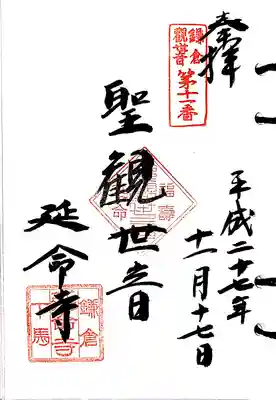 奉拝
鎌倉
観音
第十一番
平成二十七年
十一月十七日
聖観世音
延命寺